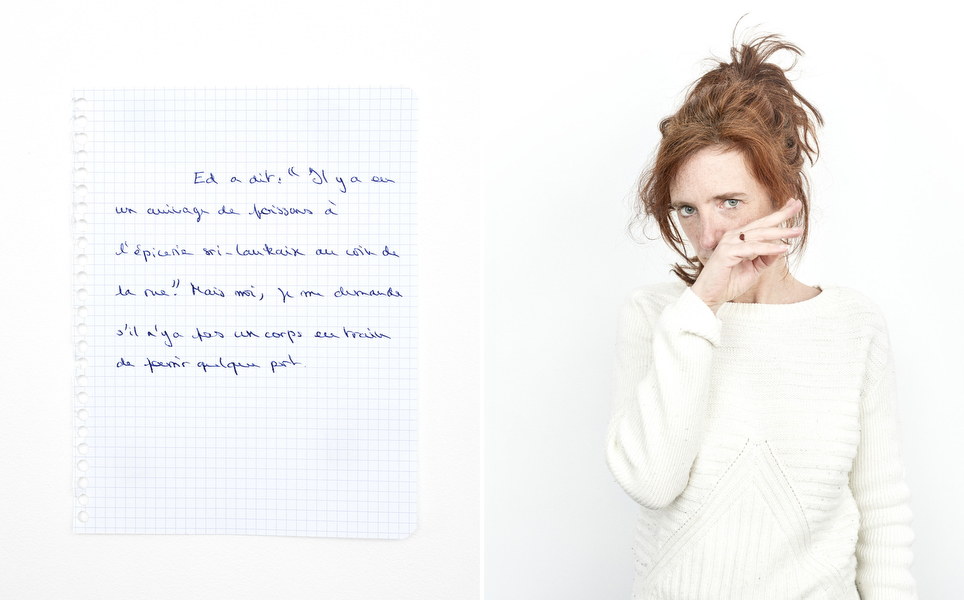 Ed a dit : " Il y a eu
un arrivage de poissons à
l'épicerie sri-lankaise au coin de
la rue". Mais moi, je me demande
s'il n'y a pas un corps en train
de pourrir quelque part.